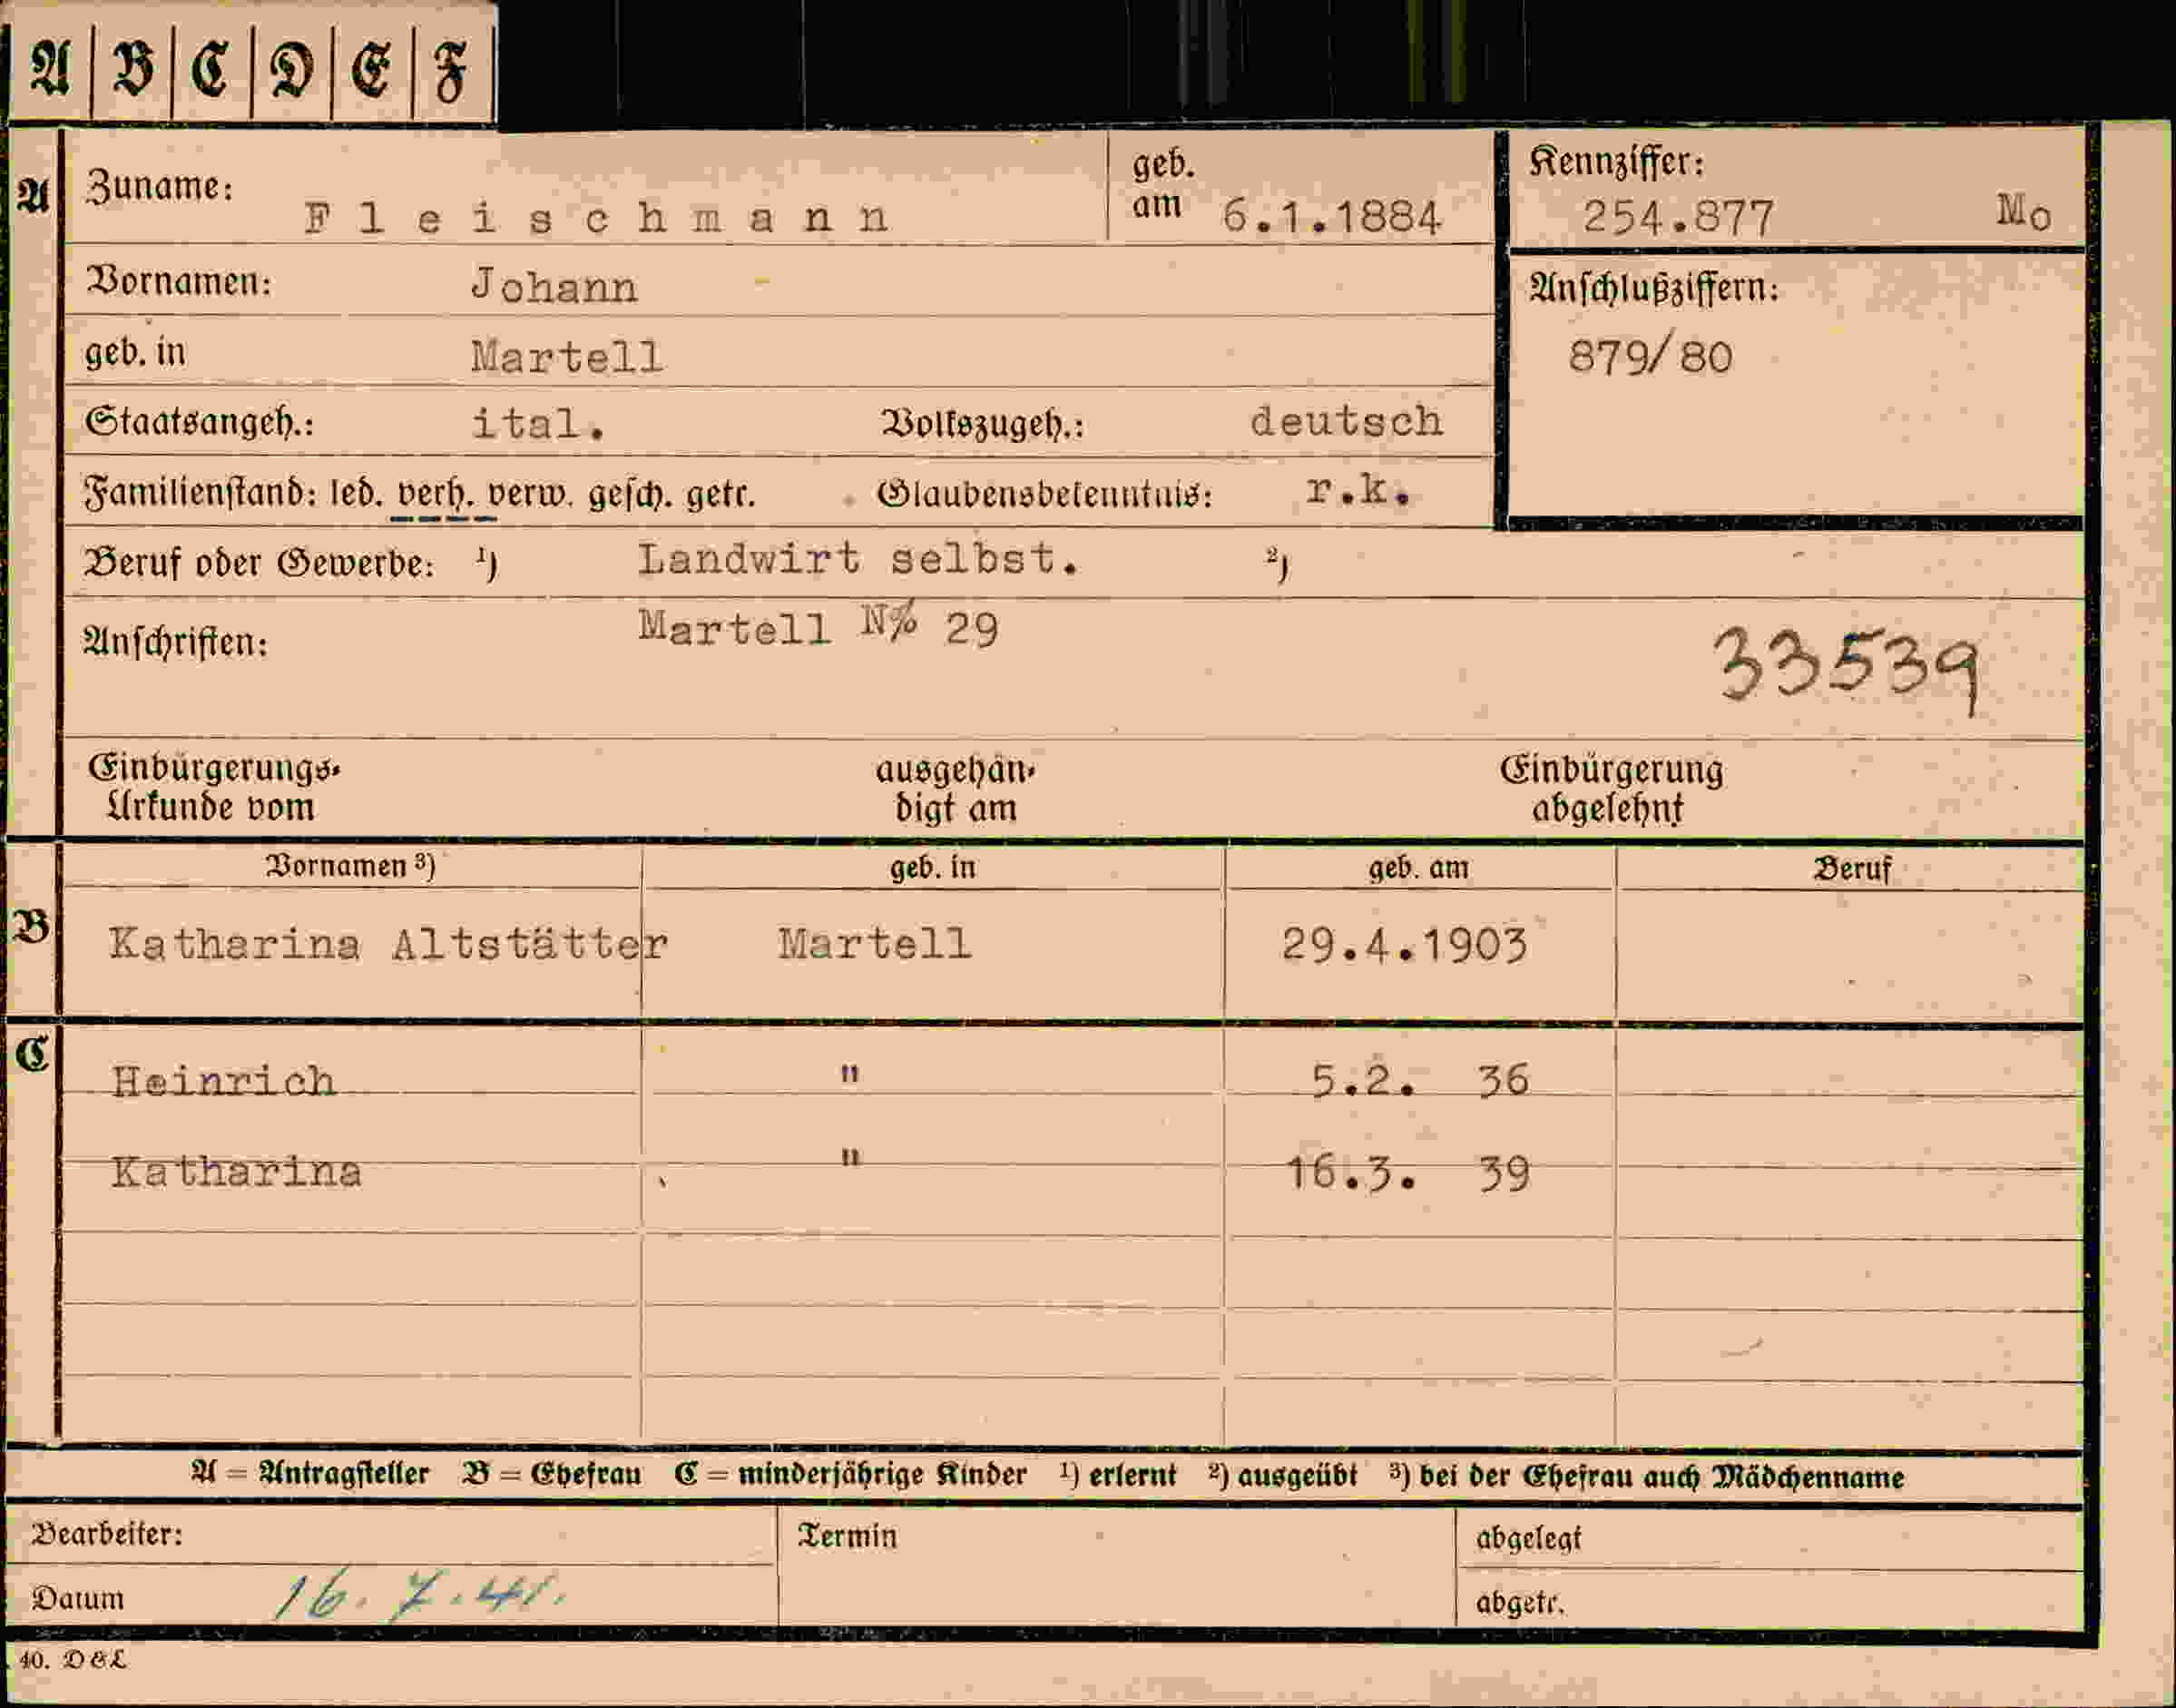 A B C D E F
A Zuname: Fleischmann geb. am 6.1.1884 Kennziffer: 254.877 Mo
Vornamen: Johann Anschlußziffern:
geb. in Martell 879/80
Staatsangeh.: ital. Volkszugeh.: deutsch
Familienstand: led. verh. verw. gesch. getr. Glaubensbekenntnis: r.k.
Beruf oder Gewerbe: 1) Landwirt selbst. 2)
Anschriften: Martell N% 29 33539
Einbürgerungs- ausgehän- Einbürgerung
Urkunde vom digt am abgelehnt
Vornamen 3) geb. in geb. am Beruf
B Katharina Altstätter Martell 29.4.1903
C Heinrich " 5.2. 36
Katharina " 16.3. 39
A = Antragsteller B = Ehefrau C = minderjährige Kinder 1) erlernt 2) ausgeübt 3) bei der Ehefrau auch Mädchenname
Bearbeiter: Termin abgelegt
Datum 16.7.41. abgetr.
40. D & L